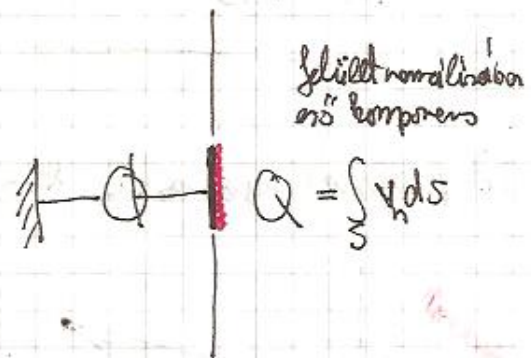 felület normálisába
eső komponens
Q = ∫ vₙ dS
S